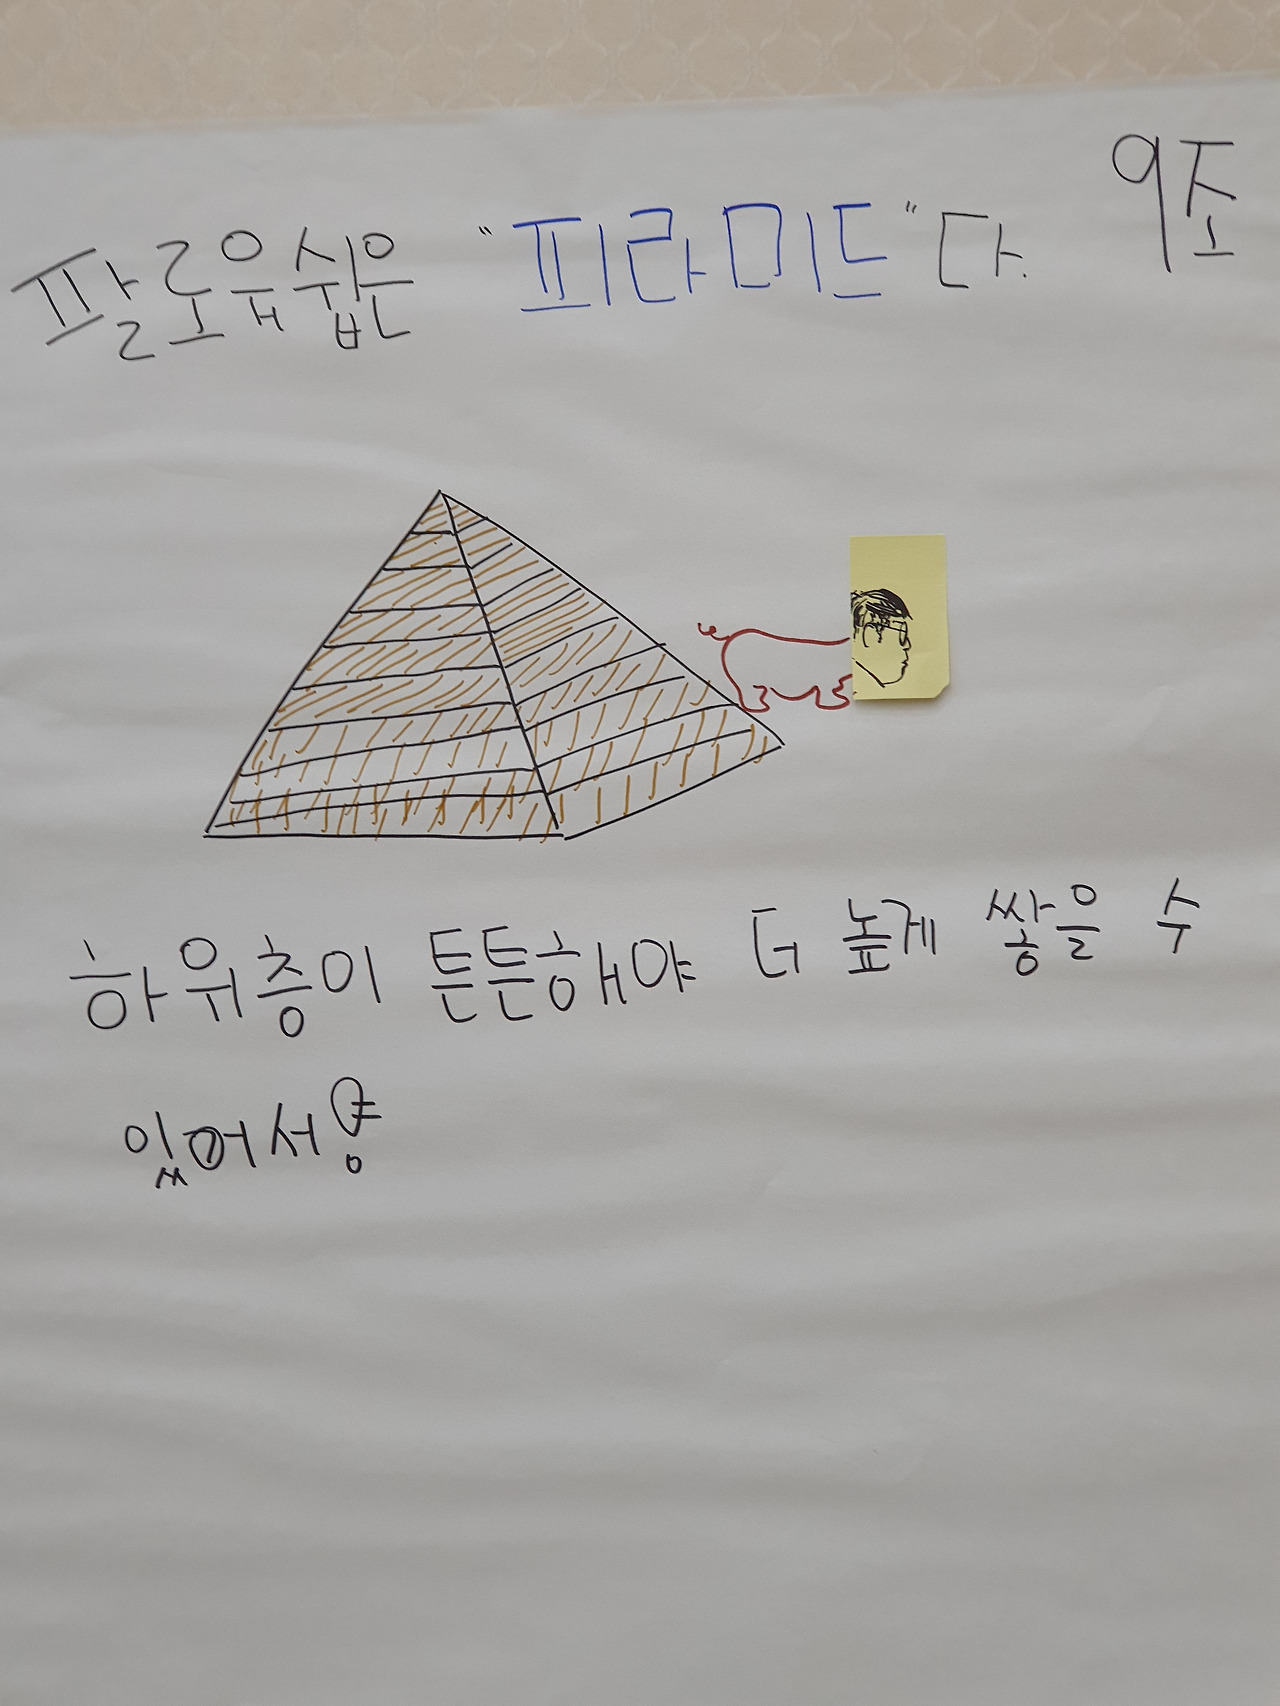 9조
팔로유쉽은 "피라미드"다.
하위층이 튼튼해야 더 높게 쌓을 수
있어서양